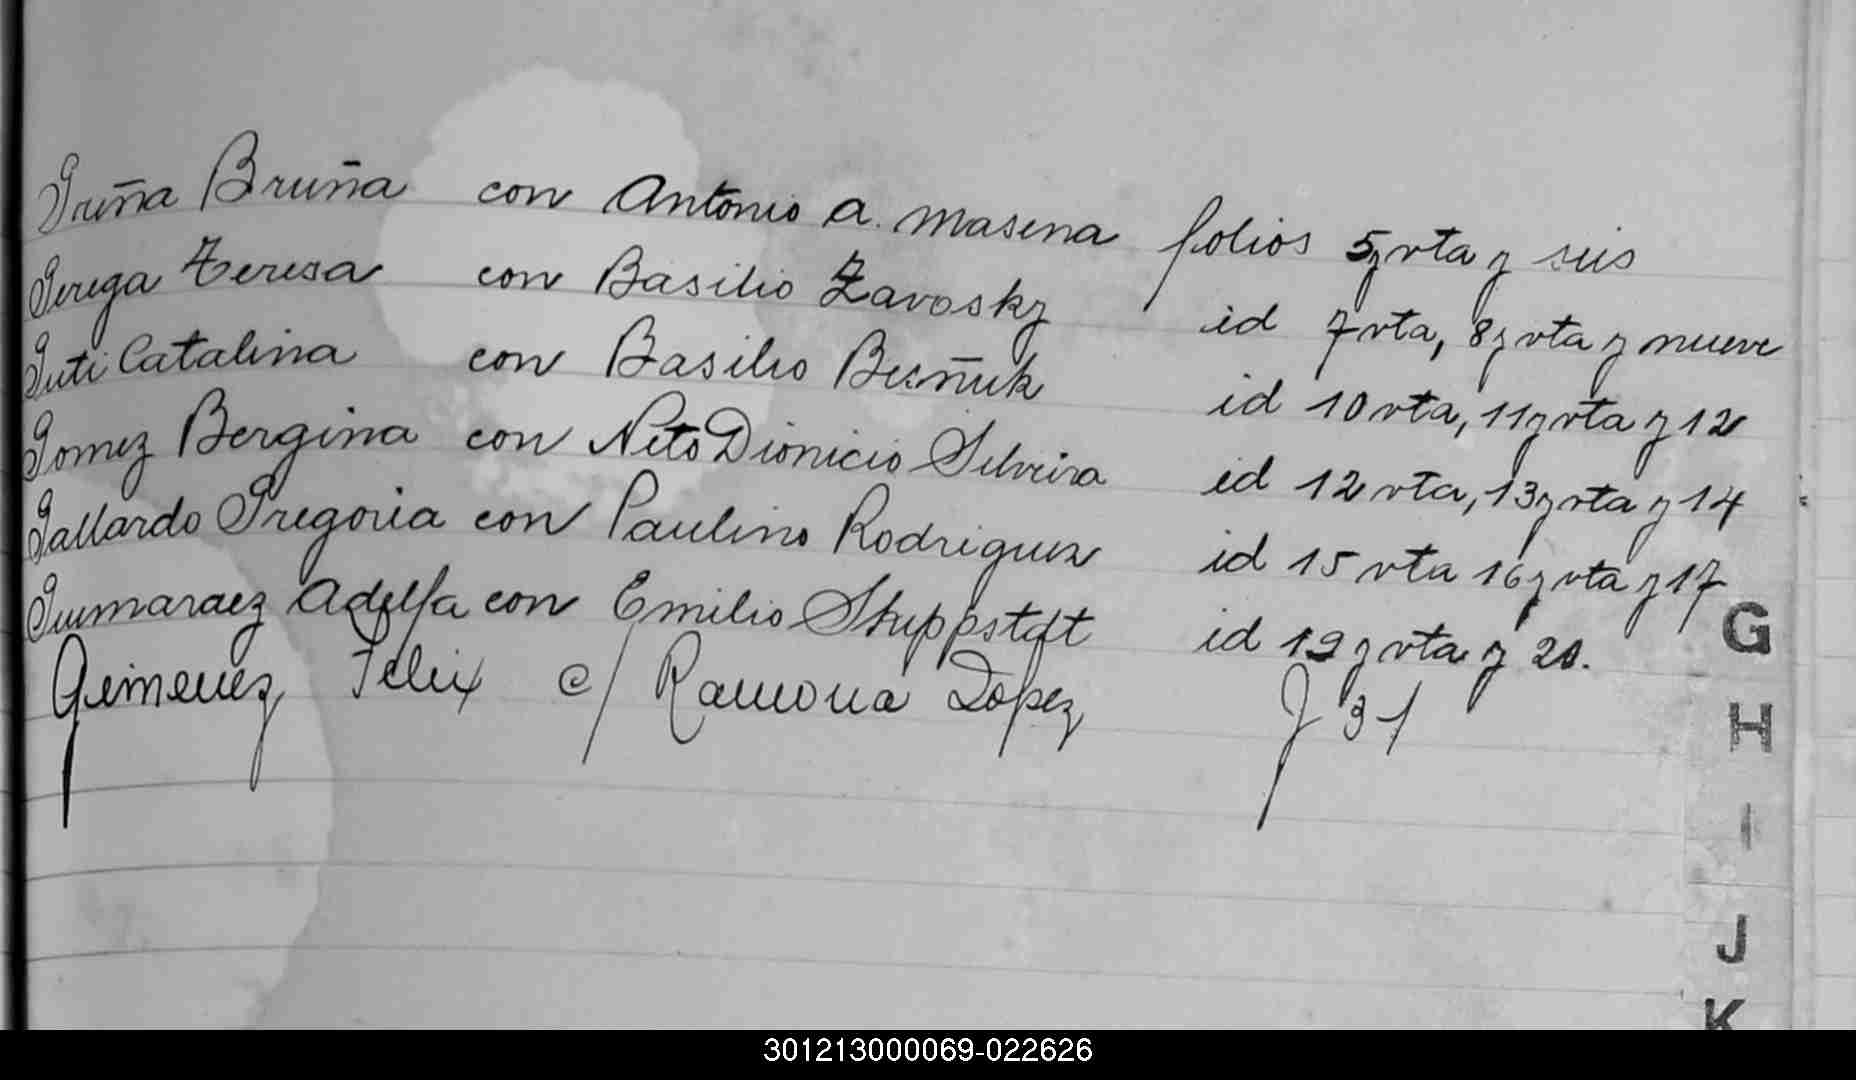 Gruña Bruña con Antonio A. Masena folios 5 y vta y seis
Gerega Teresa con Basilio Zavosky id 7 vta, 8 y vta y nueve
Guti Catalina con Basilio Besñuk id 10 vta, 11 y vta y 12
Gomez Bergina con Neto Dionicio Silveira id 12 vta, 13 y vta y 14
Gallardo Gregoria con Paulino Rodriguez id 15 vta 16 y vta y 17
Guimaraez Adelfa con Emilio Shuppstdt id 19 y vta y 20.
Gimenez Felix c/ Ramona Lopez f 31
G
H
I
J
K
301213000069-022626